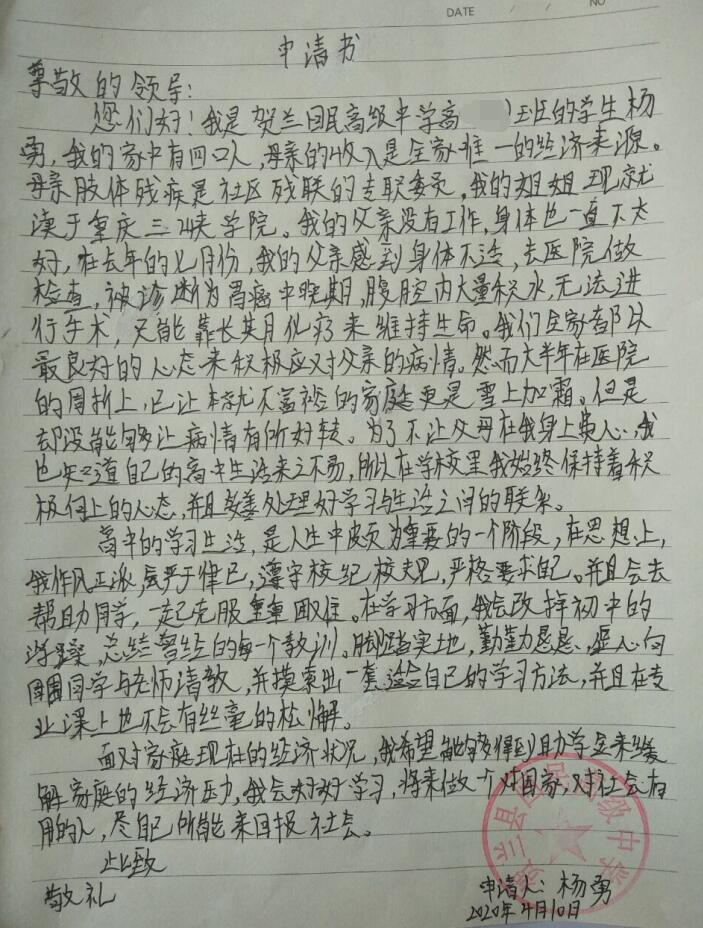 DATE / / NO
申请书
尊敬的领导:
您们好!我是贺兰回民高级中学高 班的学生杨
勇,我的家中有四口人,母亲的收入是全家唯一的经济来源。
母亲肢体残疾是社区残联的专职委员,我的姐姐现就
读于重庆三峡学院。我的父亲没有工作,身体也一直不太
好,在去年的七月份,我的父亲感到身体不适,去医院做
检查,被诊断为胃癌中晚期,腹腔内大量积水,无法进
行手术,只能靠长期化疗来维持生命。我们全家都以
最良好的心态来积极应对父亲的病情。然而大半年在医院
的周折上,已让本就不富裕的家庭更是雪上加霜。但是
却没能够让病情有所好转。为了不让父母在我身上费心,我
也知道自己的高中生活来之不易,所以在学校里我始终保持着积
极向上的心态,并且妥善处理好学习与生活之间的联系。
高中的学习生活,是人生中颇为重要的一个阶段,在思想上,
我作风正派,严于律己,遵守校纪校规,严格要求自己。并且会去
帮助同学,一起克服重重困难。在学习方面,我会改掉初中的
浮躁,总结曾经的每一个教训。脚踏实地,勤勤恳恳,虚心向
周围同学与老师请教,并摸索出一套适合自己的学习方法,并且在专
业课上也不会有丝毫的松懈。
面对家庭现在的经济状况,我希望能够得到助学金来缓
解家庭的经济压力,我会好好学习,将来做一个对国家,对社会有
用的人,尽自己所能来回报社会。
此致
敬礼
申请人:杨勇
2020年4月10日
兰县回民高级中学